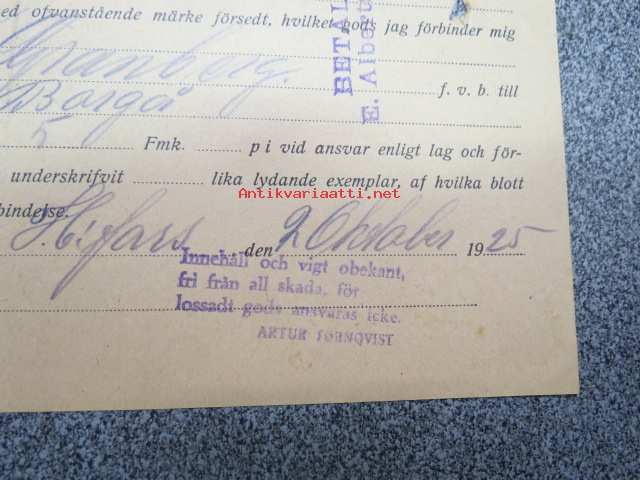 ed ofvanstående märke försedt, hvilket gods jag förbinder mig
Granberg.
Borgå f. v. b. till
BETAL
E. Alberu
5 Fmk. p i vid ansvar enligt lag och för-
underskrifvit lika lydande exemplar, af hvilka blott
Antikvariaatti.net
bindelse.
H:fors den 2 Oktober 1925
Innehåll och vigt obekant,
fri från all skada, för
lossadt gods ansvaras icke.
ARTUR TÖRNQVIST